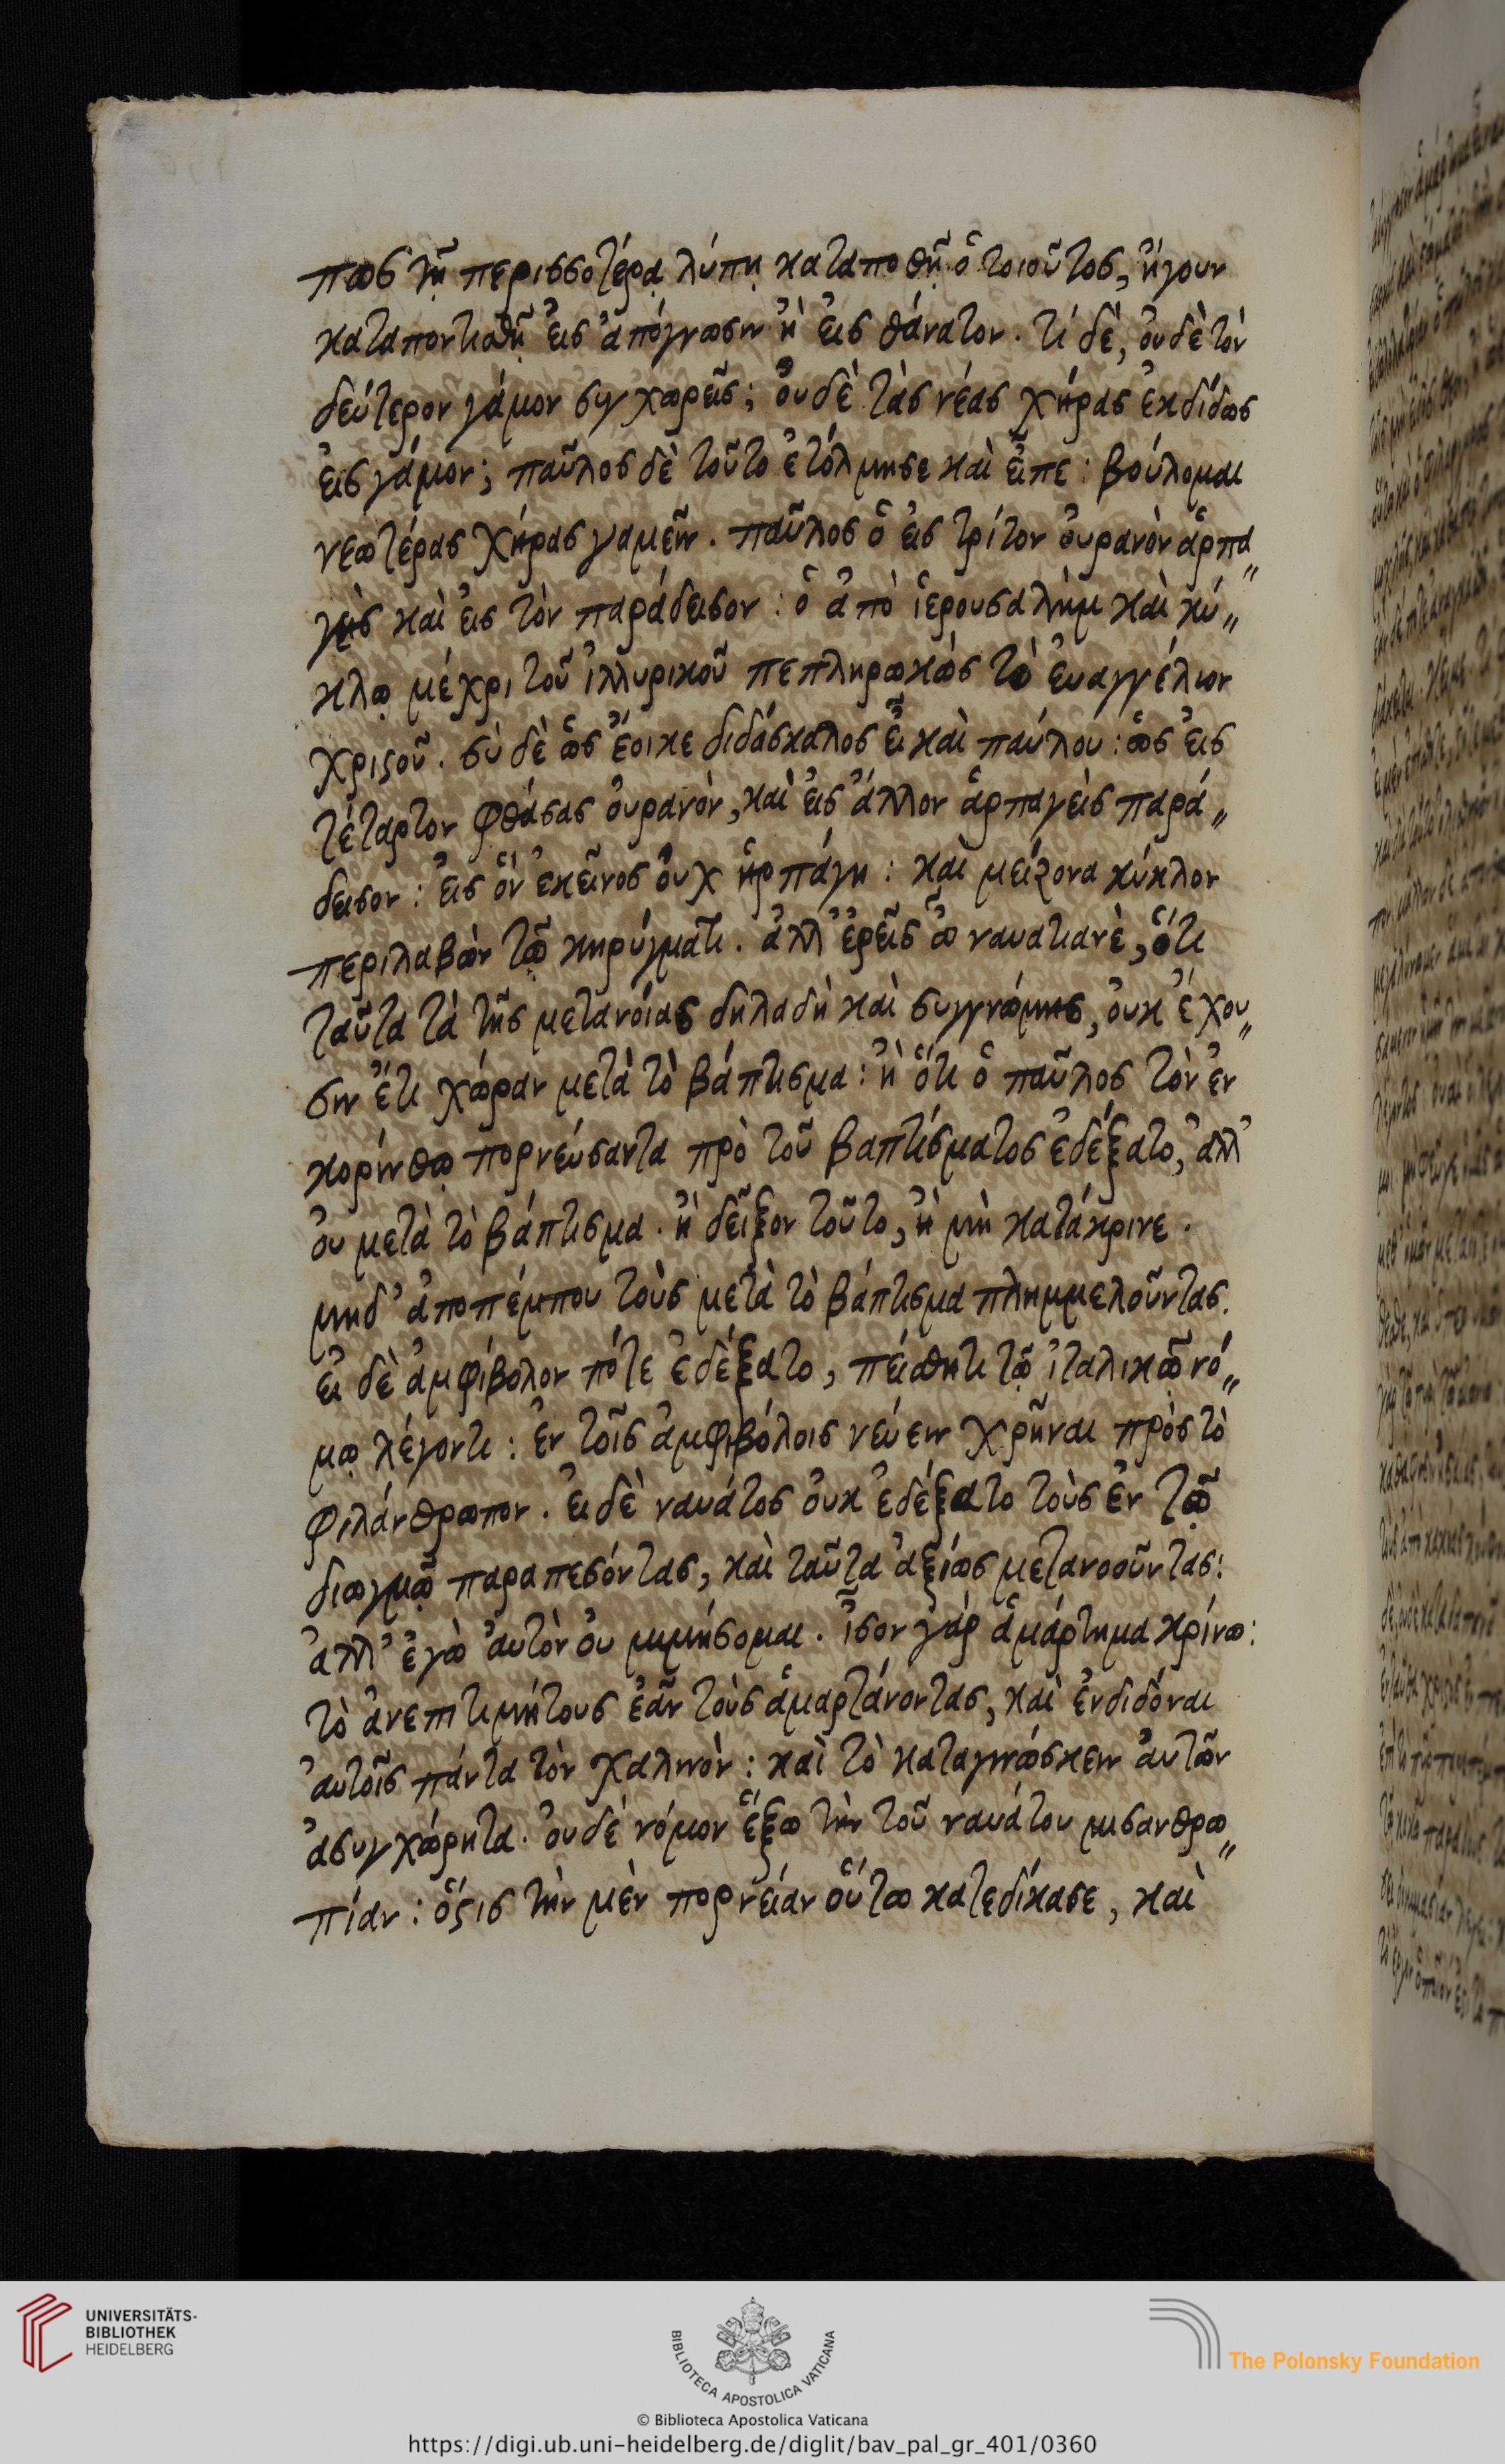 πως τῇ περισσοτέρᾳ λύπῃ καταποθῇ ὁ τοιοῦτος, ἤγουν
καταποντισθῇ εἰς ἀπόγνωσιν ἢ εἰς θάνατον. τί δὲ, οὐδὲ τὸν
δεύτερον γάμον συγχωρεῖς; οὐδὲ τὰς νέας χήρας ἐκδίδως
εἰς γάμον; παῦλος δὲ τοῦτο ἐτόλμησε καὶ εἶπε: βούλομαι
νεωτέρας χήρας γαμεῖν. παῦλος ὁ εἰς τρίτον οὐρανὸν ἁρπα„
γεὶς καὶ εἰς τὸν παράδεισον: ὁ ἀπὸ ἱερουσαλὴμ καὶ κύ„
κλῳ μέχρι τοῦ ἰλλυρικοῦ πεπληρωκὼς τὸ ἐυαγγέλιον
χριϛοῦ. σὺ δὲ ὡς ἔοικε διδάσκαλος εἶ καὶ παύλου: ὡς εἰς
τέταρτον φθάσας οὐρανὸν, καὶ εἰς ἄλλον ἁρπαγεὶς παρά„
δεισον: εἰς ὃν ἐκεῖνος οὐχ ἡρπάγη: καὶ μείζονα κύκλον
περιλαβὼν τῷ κηρύγματι. ἀλλ' ἐρεῖς ὦ ναυατιανὲ, ὅτι
ταῦτα τὰ τῆς μετανοίας δηλαδὴ καὶ συγγνώμης, οὐκ ἔχου„
σιν ἔτι χώραν μετὰ τὸ βάπτισμα: ἢ ὅτι ὁ παῦλος τὸν ἐν
κορίνθῳ πορνεύσαντα πρὸ τοῦ βαπτίσματος ἐδέξατο, ἀλλ'
οὐ μετὰ τὸ βάπτισμα. ἢ δεῖξον τοῦτο, ἢ μὴ κατάκρινε.
μηδ' ἀποπέμπου τοὺς μετὰ τὸ βάπτισμα πλημμελοῦντας.
εἰ δὲ ἀμφίβολον πότε ἐδέξατο, πείσθητι τῷ ἰταλικῷ νό„
μῳ λέγοντι: ἐν τοῖς ἀμφιβόλοις νεύειν χρῆναι πρὸς τὸ
φιλάνθρωπον. εἰ δὲ ναυάτος οὐκ ἐδέξατο τοὺς ἐν τῷ
διωγμῷ παραπεσόντας, καὶ ταῦτα ἀξίως μετανοοῦντας:
ἀλλ' ἐγὼ αὐτὸν οὐ μιμήσομαι. ἶσον γάρ ἁμάρτημα κρίνω:
τὸ ἀνεπιτιμήτους ἐᾶν τοὺς ἁμαρτάνοντας, καὶ ἐνδιδόναι
αὐτοῖς πάντα τὸν χαλινὸν: καὶ τὸ καταγινώσκειν αὐτῶν
ἀσυγχώρητα. οὐδὲ νόμον ἕξω τὴν τοῦ ναυάτου μισανθρω„
πίαν: ὅϛις τὴν μὲν πορνείαν οὕτω κατεδίκασε, καὶ
UNIVERSITÄTS-
BIBLIOTHEK
HEIDELBERG
BIBLIOTECA APOSTOLICA VATICANA
The Polonsky Foundation
© Biblioteca Apostolica Vaticana
https://digi.ub.uni-heidelberg.de/diglit/bav_pal_gr_401/0360